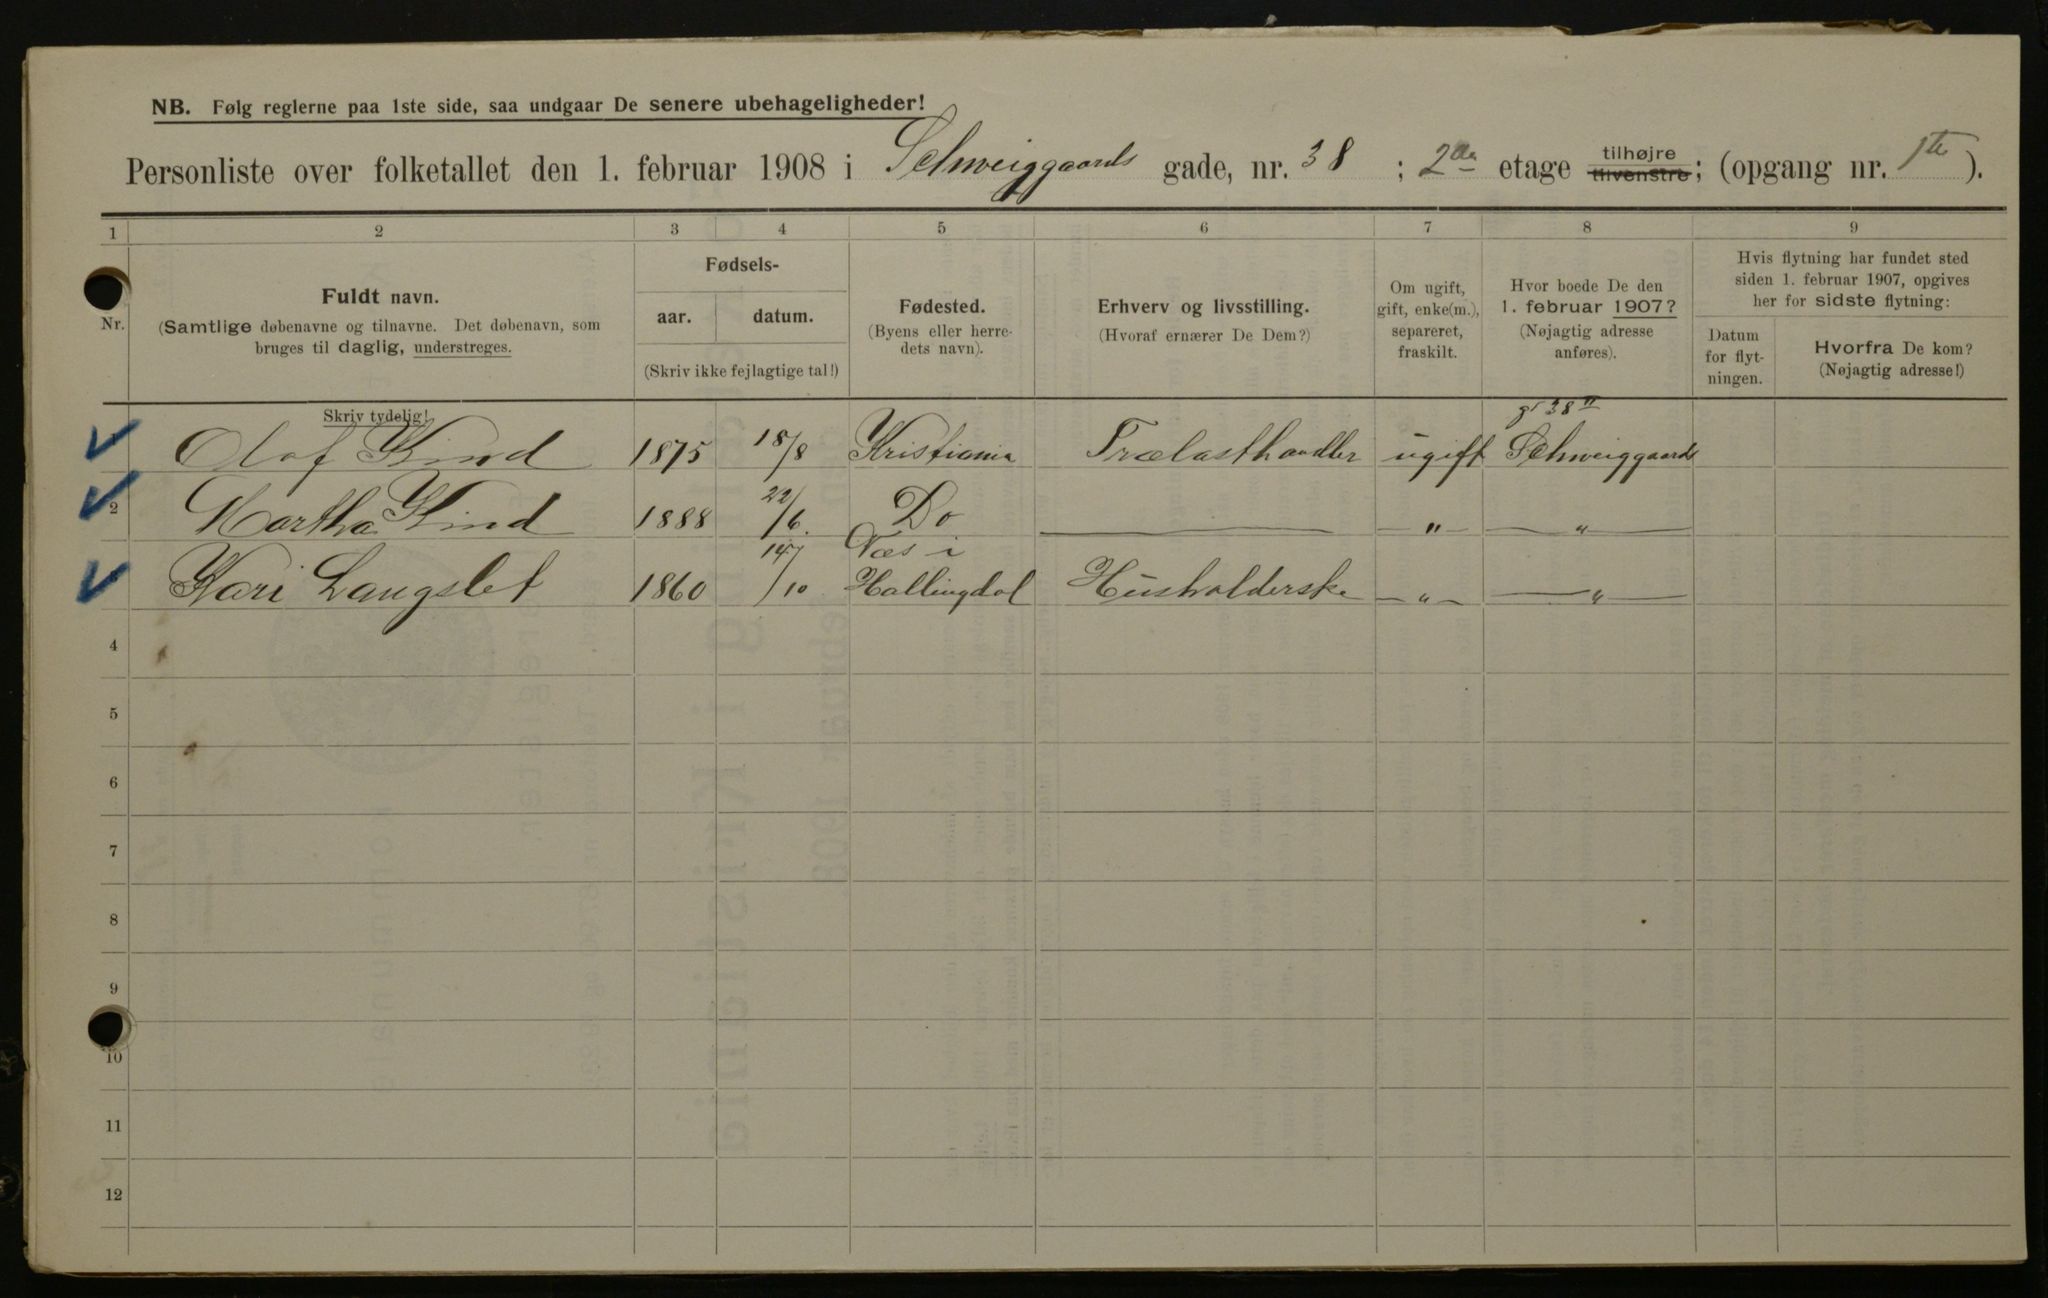 NB. Følg reglerne paa 1ste side, saa undgaar De senere ubehageligheder!
Personliste over folketallet den 1. februar 1908 i Schweiggaards gade, nr. 38 ; 2den etage tilhøjre tilvenstre; (opgang nr. 1ste ).
1 2 3 4 5 6 7 8 9
Nr.
Fuldt navn.
(Samtlige døbenavne og tilnavne. Det døbenavn, som
bruges til daglig, understreges.
Skriv tydelig!
Fødsels-
aar. datum.
(Skriv ikke fejlagtige tal!)
Fødested.
(Byens eller herre-
dets navn).
Erhverv og livsstilling.
(Hvoraf ernærer De Dem?)
Om ugift,
gift, enke(m.),
separeret,
fraskilt.
Hvor boede De den
1. februar 1907?
(Nøjagtig adresse
anføres).
Hvis flytning har fundet sted
siden 1. februar 1907, opgives
her for sidste flytning:
Datum
for flyt-
ningen.
Hvorfra De kom?
(Nøjagtig adresse!)
Olaf Kind 1875 18/8 Kristiania Trælasthandler ugift Schweiggaards gd 38 II
2 Martha Kind 1888 22/6 Do — — " — — " —
Kari Langslet 1860 14/10 Næs i Hallingdal Husholderske — " — — " —
4
5
6
7
8
9
10
11
12